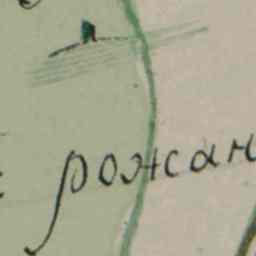 рожан